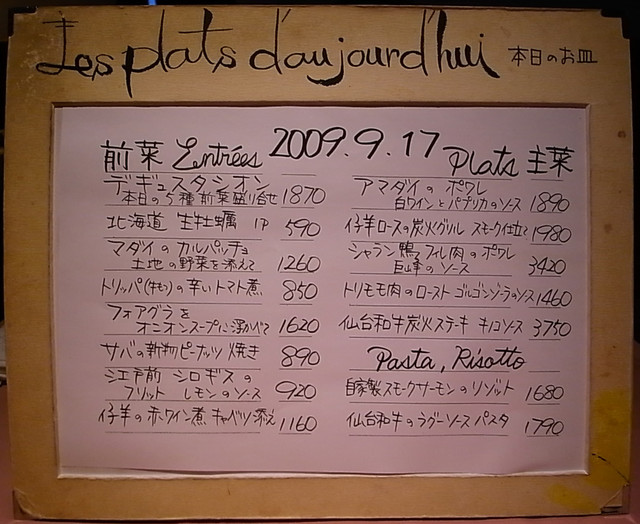 Les plats d'aujourd'hui 本日のお皿
2009.9.17
前菜 Entrées
デギュスタシオン
本日の5種前菜盛り合せ 1870
北海道 生牡蠣 1P 590
マダイのカルパッチョ
土地の野菜を添えて 1260
トリッパ(牛モツ)の辛いトマト煮 850
フォアグラを
オニオンスープに浮かべて 1620
サバの新物ピーナッツ焼き 890
江戸前 シロギスの
フリット レモンのソース 920
仔羊の赤ワイン煮 キャベツ添え 1160
Plats 主菜
アマダイのポワレ
白ワインとパプリカのソース 1890
仔羊ロースの炭火グリル スモーク仕立て 1980
シャラン鴨フィレ肉のポワレ
巨峰のソース 3420
トリモモ肉のロースト ゴルゴンゾーラのソース 1460
仙台和牛炭火ステーキ キノコソース 3750
Pasta, Risotto
自家製スモークサーモンのリゾット 1680
仙台和牛のラグーソース パスタ 1790